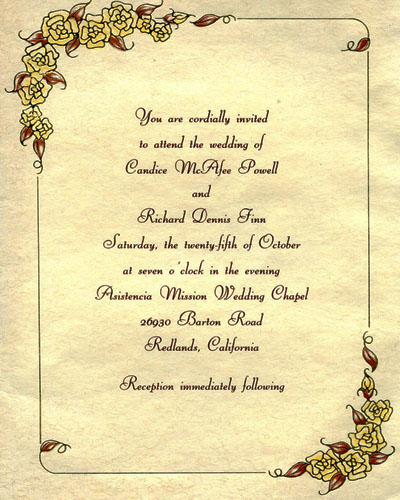 You are cordially invited
to attend the wedding of
Candice McAfee Powell
and
Richard Dennis Finn
Saturday, the twenty-fifth of October
at seven o'clock in the evening
Asistencia Mission Wedding Chapel
26930 Barton Road
Redlands, California
Reception immediately following